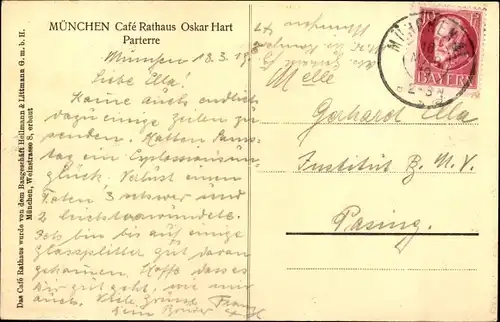 MÜNCHEN Café Rathaus Oskar Hart
Parterre
München 18.3.19
Liebe Ella!
Komme auch endlich
dazu einige Zeilen zu
senden. Hatten Sams-
tag ein Explosionsun-
glück. Verlust einen
Toten 3 schwer und
2 leichtverwundete.
bin bis auf einige
Glassplitter gut davon
gekommen. Hoffe dass es
Dir gut geht, wie mir
auch. Viele Grüsse
Dein Bruder
Das Café Rathaus wurde von dem Baugeschäft Heilmann & Littmann G. m. b. H.
München, Weinstrasse 8, erbaut
München
BAYERN
Gerhard Ella
Institut B. M. V.
Pasing.